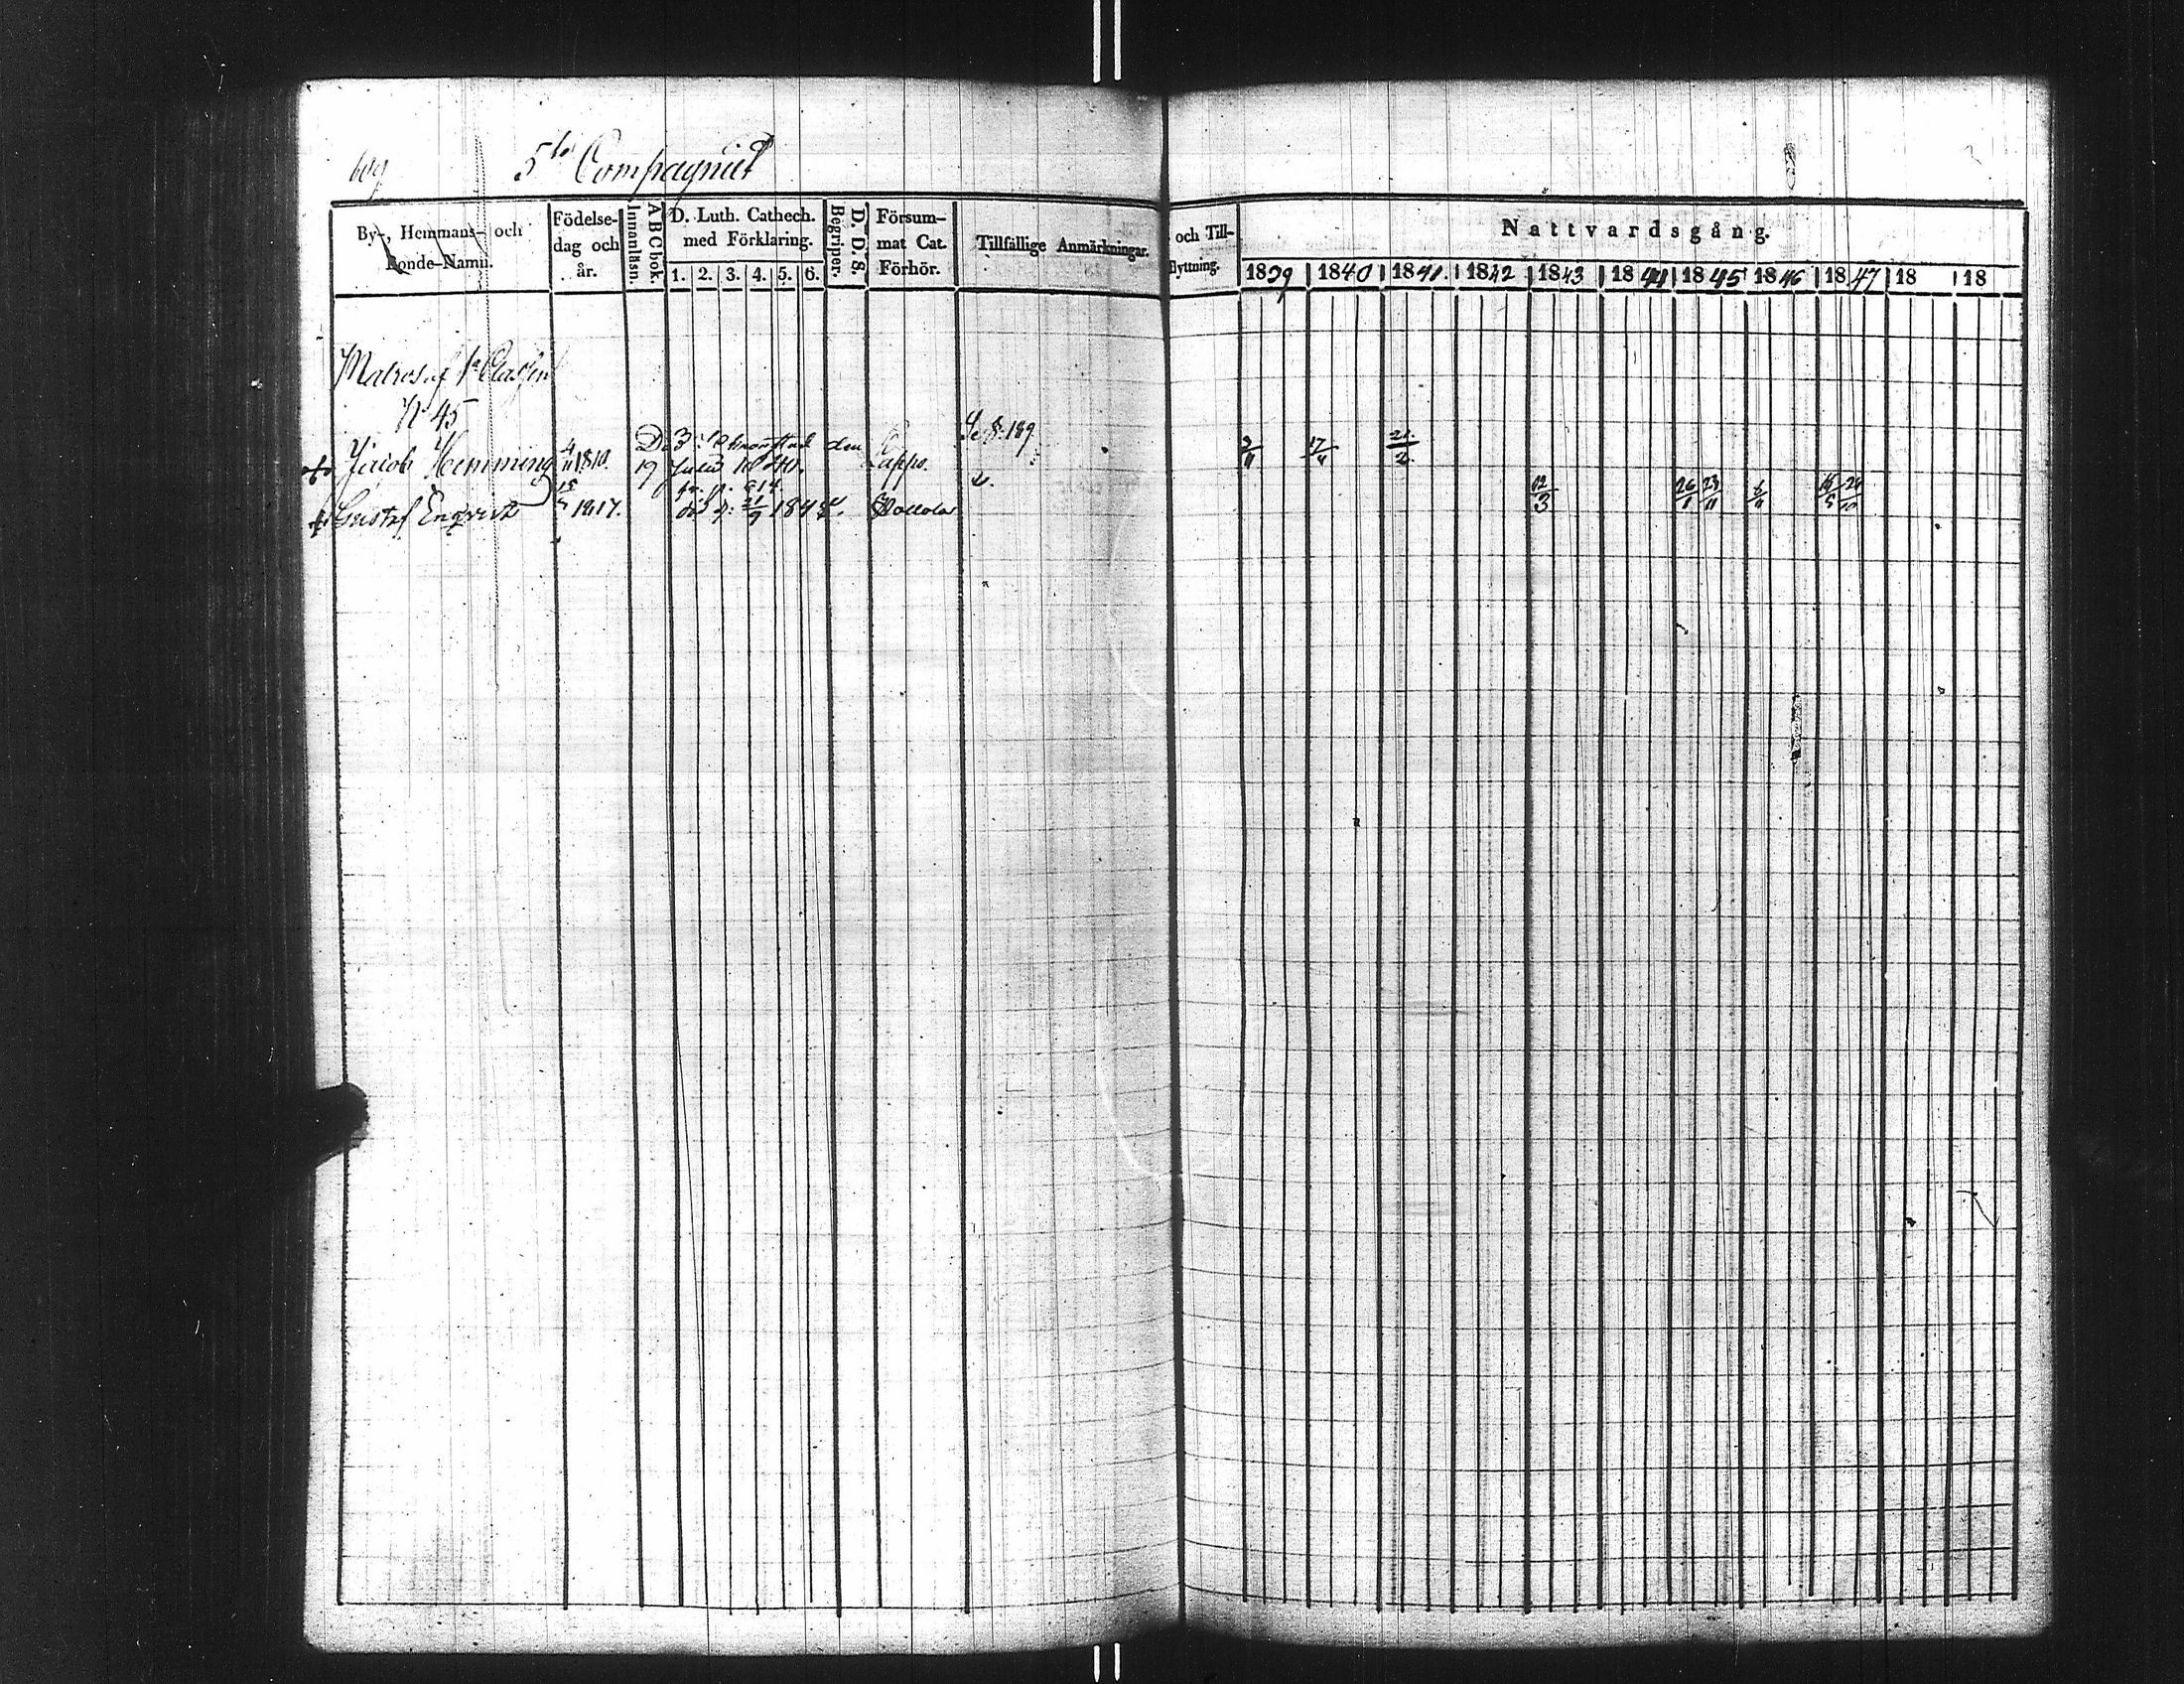 609
5te Compagniet
By-, Hemmans- och Bonde-Namn.
Födelse-dag och år.
ABCbok. Innanläsn.
D. Luth. Cathech. med Förklaring.
1. 2. 3. 4. 5. 6.
D. D. S. Begriper.
Försum-mat Cat. Förhör.
Tillfällige Anmärkningar.
och Till-flyttning.
Nattvardsgång.
1839 1840 1841. 1842 1843 1844 1845 1846 1847 18 18
Matros af 1a Classen
N 45
Jacob Hemming 4/11 1810. Död i Cronstad den 19 Junii 1840. Lappo. 189 3/11 17/4 21/2
Gustaf Enqvist 1817. död d: 21/9 1847. Hollola 12/3 26/1 23/11 /11